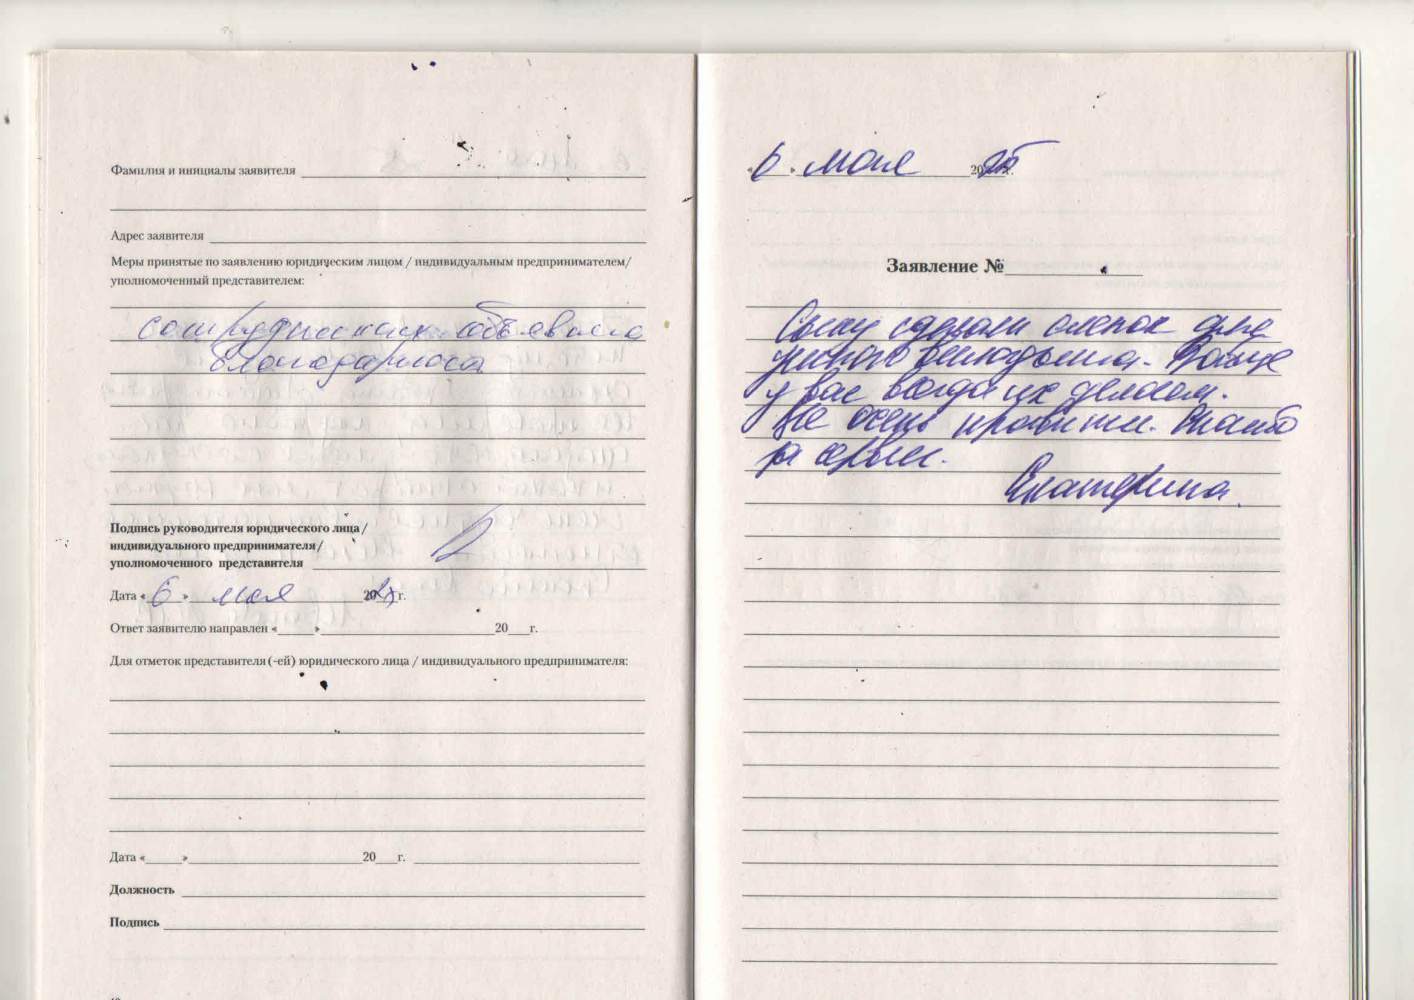 Фамилия и инициалы заявителя
Адрес заявителя
Меры принятые по заявлению юридическим лицом / индивидуальным предпринимателем/
уполномоченный представителем:
сотрудникам объявлена
благодарность
Подпись руководителя юридического лица /
индивидуального предпринимателя /
уполномоченного представителя
Дата « 6 » мая 20 г.
Ответ заявителю направлен « » 20 г.
Для отметок представителя (-ей) юридического лица / индивидуального предпринимателя:
Дата « » 20 г.
Должность
Подпись
« 6 » мая 20 г.
Заявление №
Сыну сделали слепок для
у вас всегда их делаем.
Все очень нравится. Спасибо
за
Екатерина.